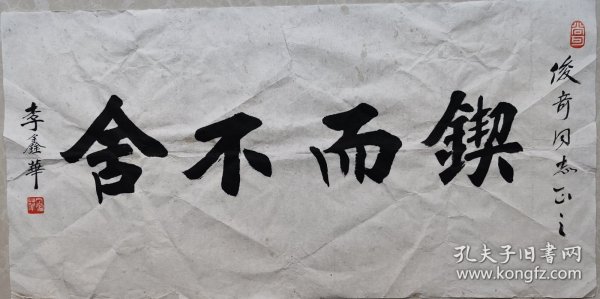 俊奇同志正之
鍥而不舍
李鑫華
孔夫子旧書网
www.kongfz.com